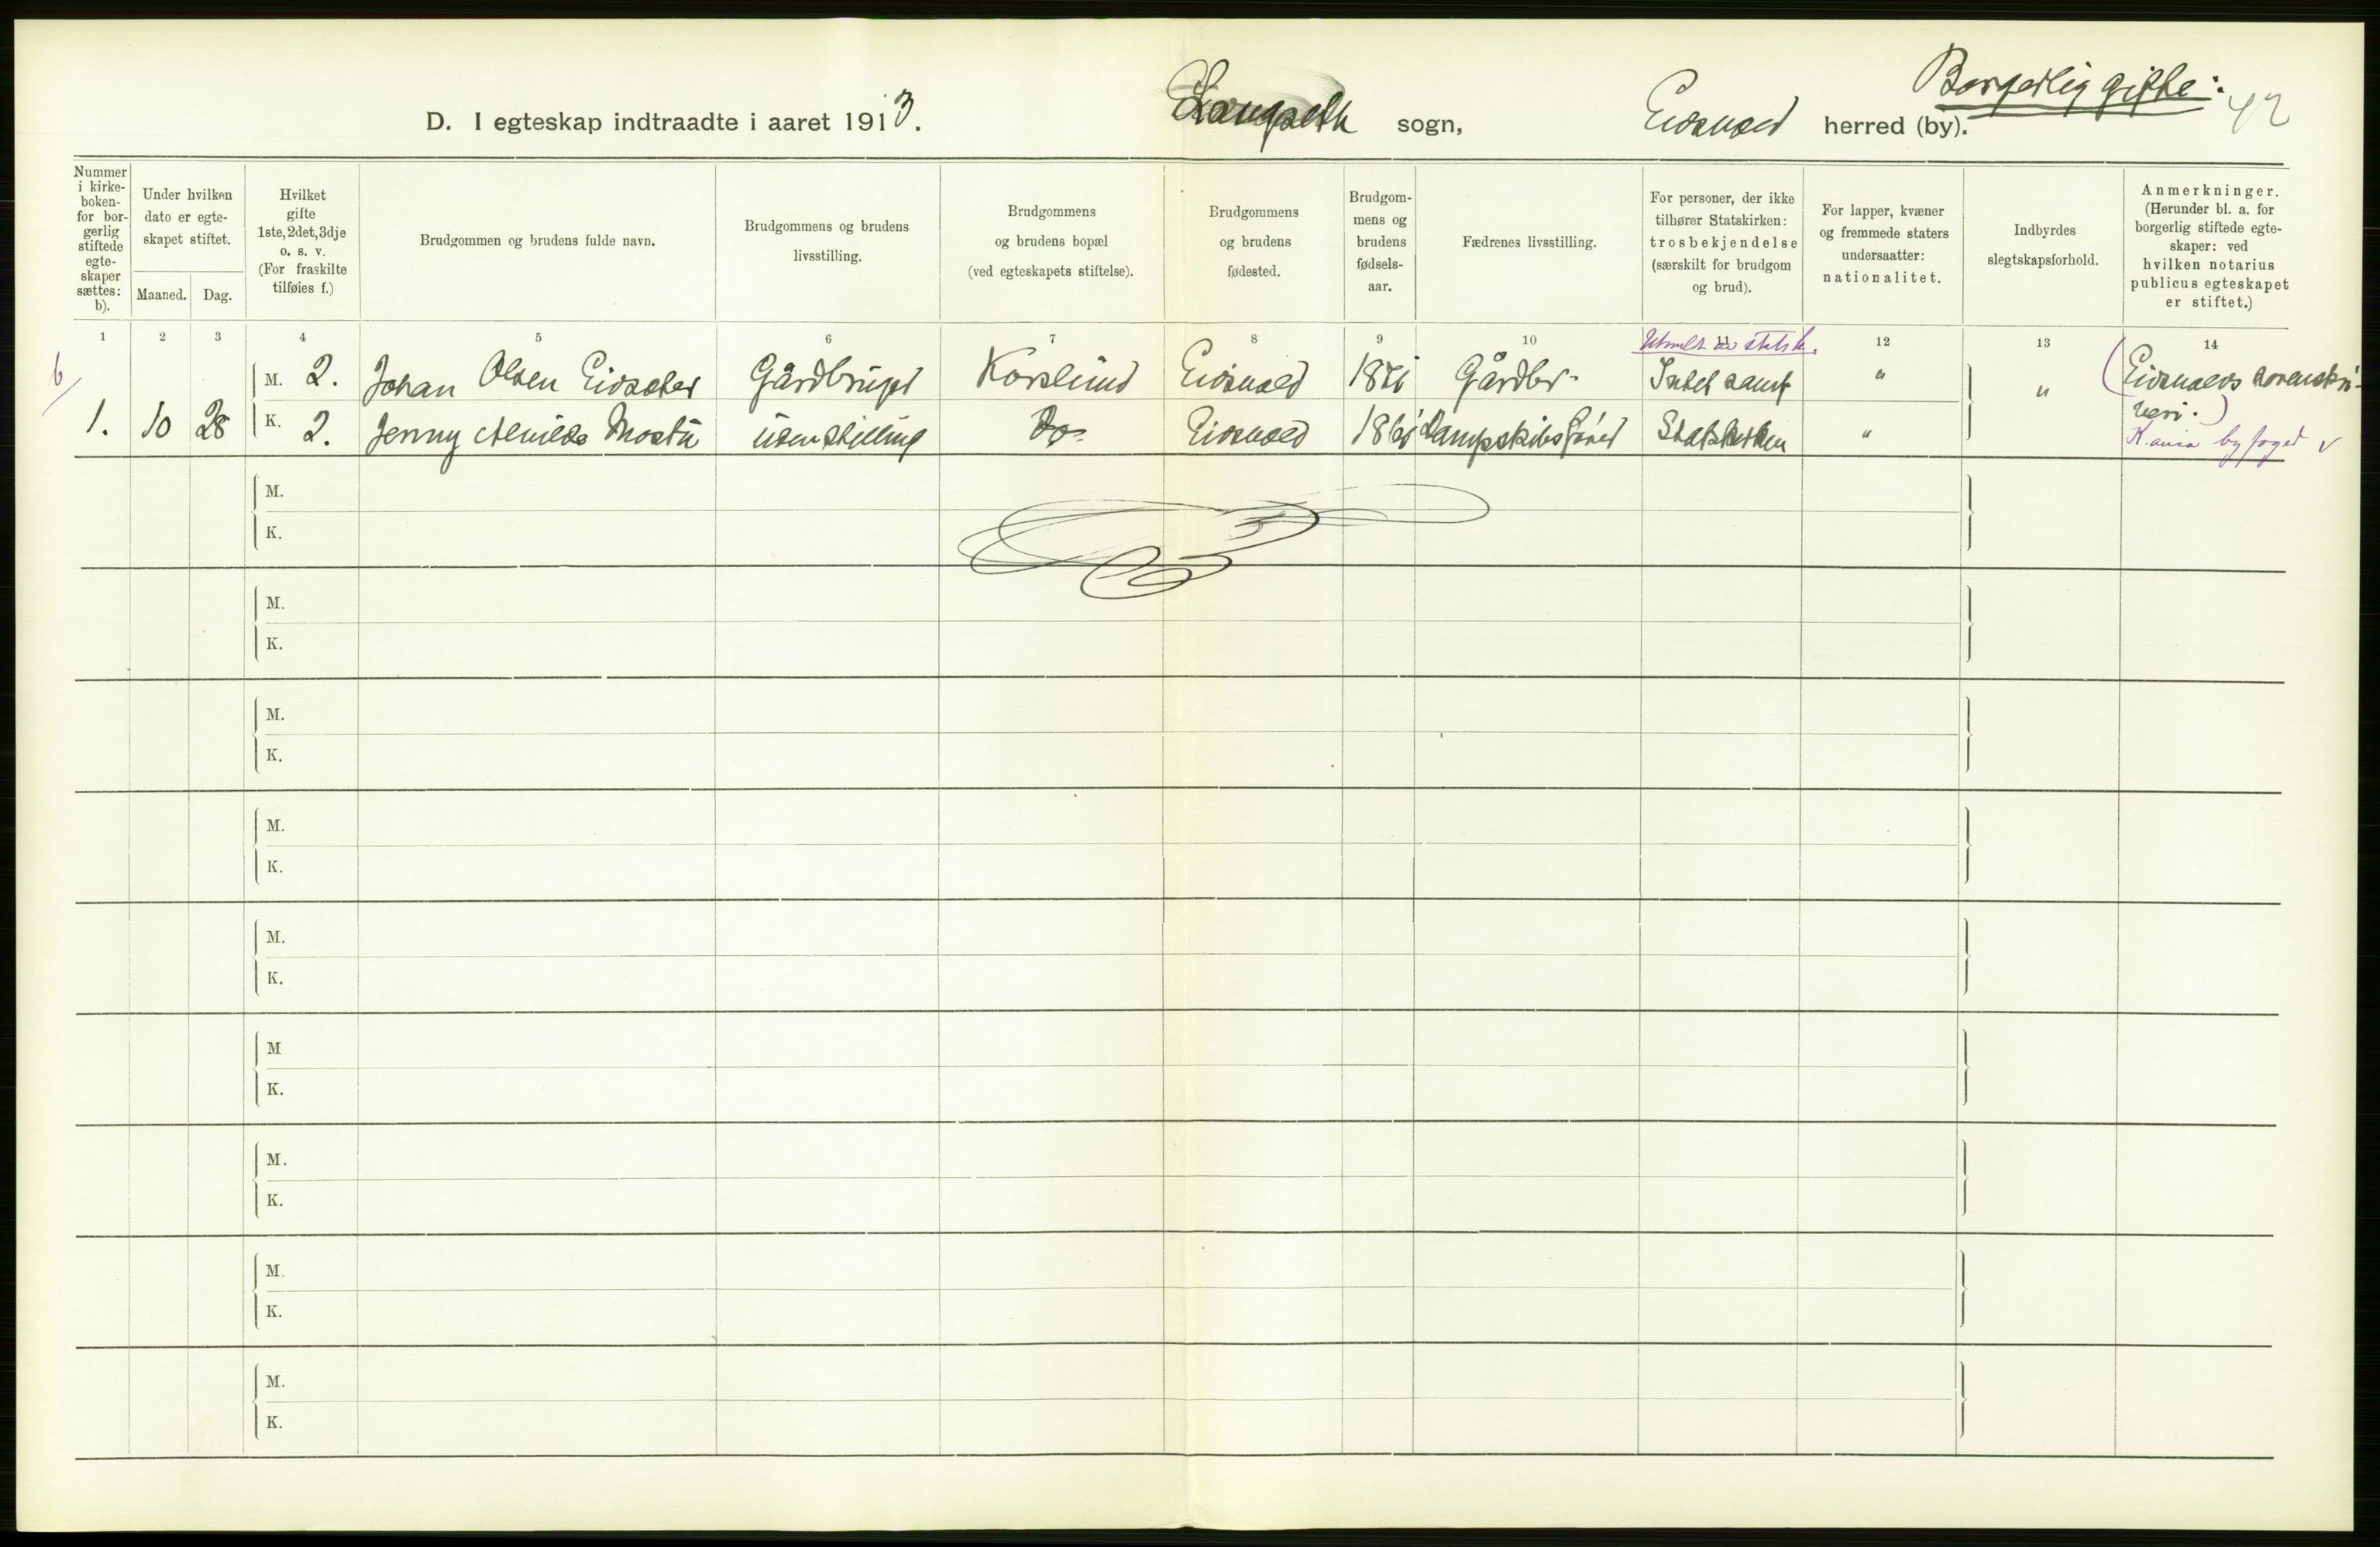 Borgerlig gifte:
42
D. I egteskap indtraadte i aaret 1913. Langseth sogn, Eidsvold herred (by).
Nummer i kirke-boken- for bor-gerlig stiftede egte-skaper sættes: b).
Under hvilken dato er egte-skapet stiftet.
Maaned. Dag.
Hvilket gifte 1ste, 2det, 3dje o. s. v. (For fraskilte tilføies f.)
Brudgommen og brudens fulde navn.
Brudgommens og brudens livsstilling.
Brudgommens og brudens bopæl (ved egteskapets stiftelse).
Brudgommens og brudens fødested.
Brudgom-mens og brudens fødsels-aar.
Fædrenes livsstilling.
For personer, der ikke tilhører Statskirken: trosbekjendelse (særskilt for brudgom og brud).
For lapper, kvæner og fremmede staters undersaatter: nationalitet.
Indbyrdes slegtskapsforhold.
Anmerkninger. (Herunder bl. a. for borgerlig stiftede egte-skaper: ved hvilken notarius publicus egteskapet er stiftet.)
1 2 3 4 5 6 7 8 9 10 11 12 13 14
Utmeldt av statsk.
b M. 2. Johan Olsen Eidsæter Gårdbruger Korslund Eidsvold Gårdbr. Intet samf " " (Eidsvolds sorenskri-
veri.)
1. 10 28 K. 2. Jenny Alvilde uden stilling Do Eidsvold Dampskibsfører Statskirken "
K.ania byfoged v
M.
K.
M.
K.
M.
K.
M.
K.
M.
K.
M
K.
M.
K.
M.
K.
M.
K.